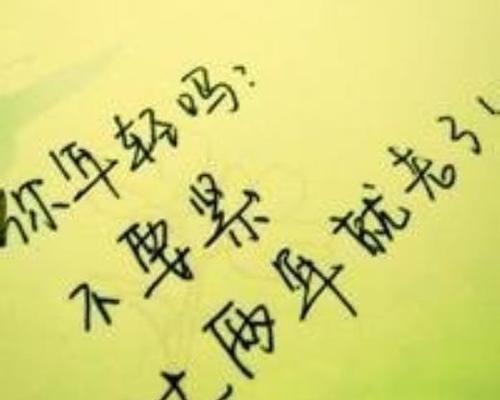 你年轻吗?
不要紧
两年就老了!